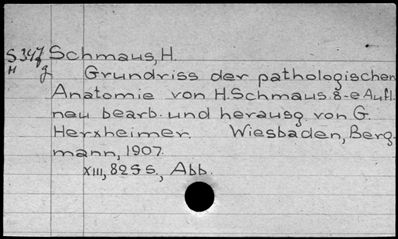 S347 Schmaus, H.
H g Grundriss der pathologischen
Anatomie von H. Schmaus. 8-e Aufl.
neu bearb. und herausg. von G.
Herxheimer. Wiesbaden, Berg-
mann, 1907.
XIII, 825 S., Abb.